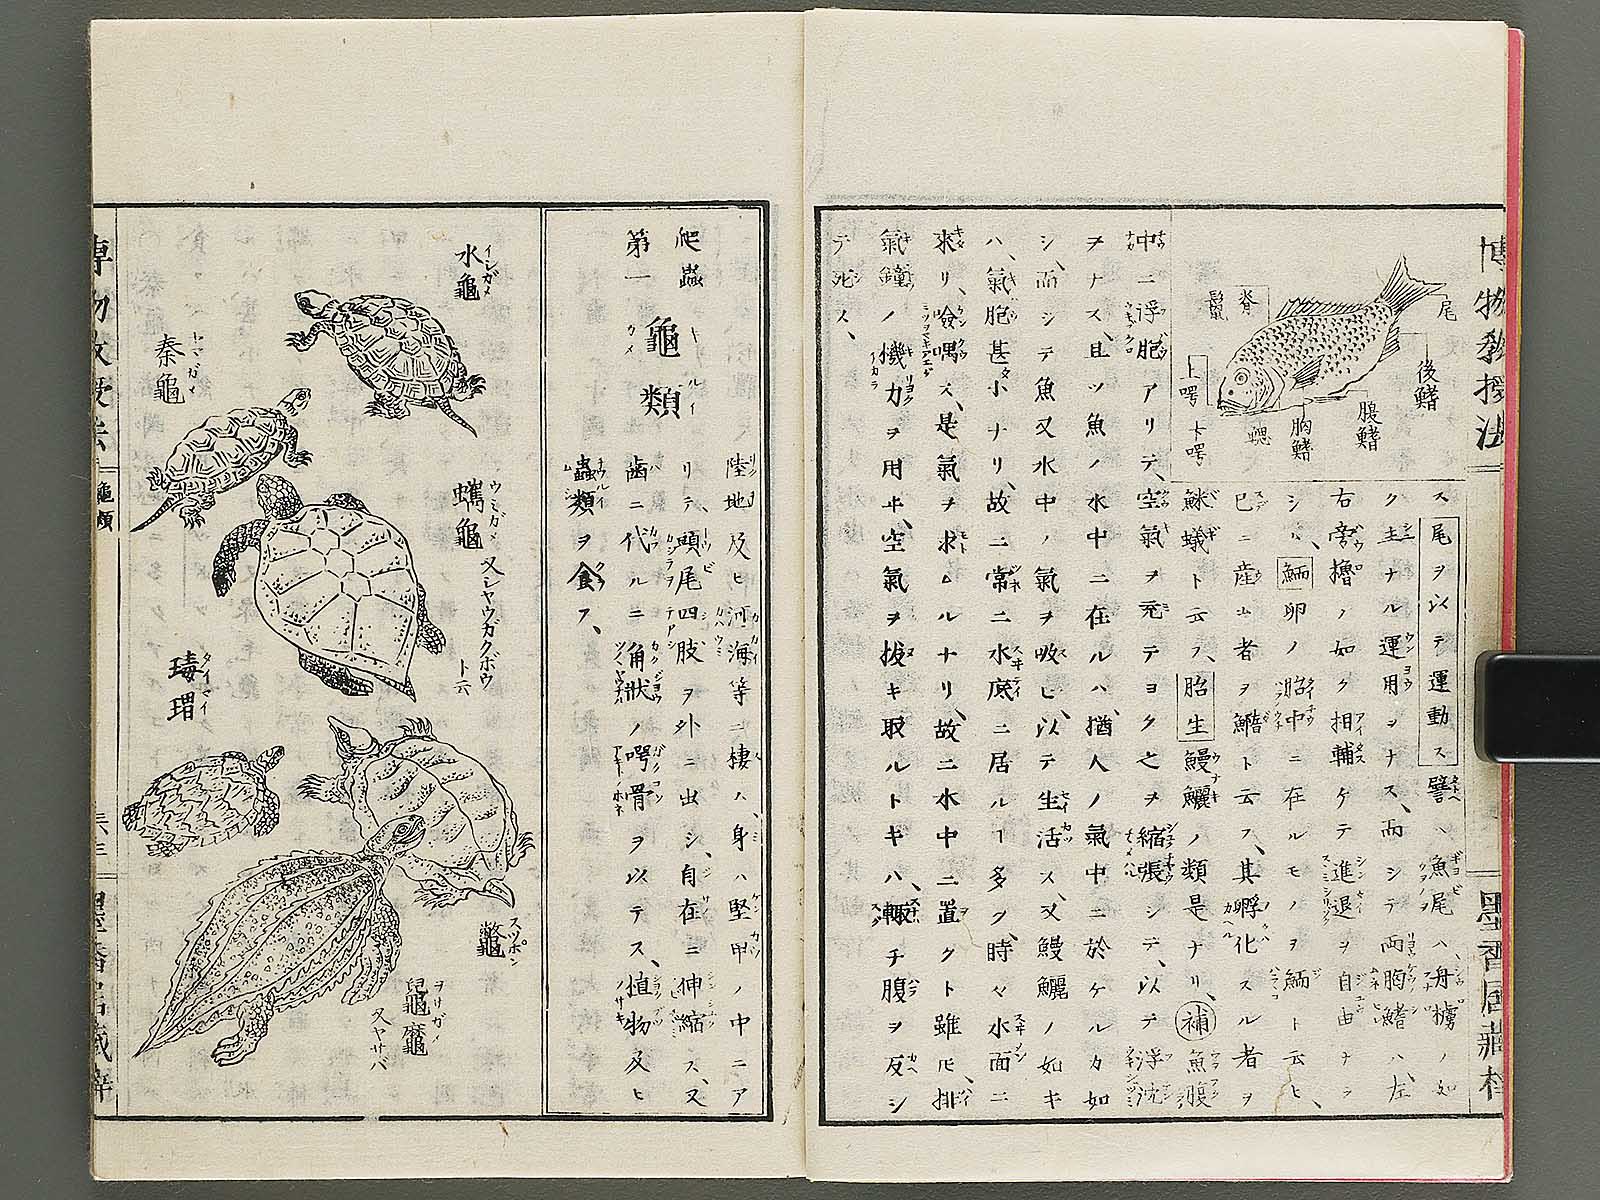 博物教授法
墨香居藏梓
尾
後鰭
腹鰭
胸鰭
鰓
脊鬣
上㗁
下㗁
ス尾ヲ以テ運動ス譬ヘハ魚尾ハ舟櫓ノ如
ク主ナル運用ヲナス、而シテ両胸鰭ハ、左
右旁擼ノ如ク相輔ケテ進退ヲ自由ナラ
シム、鮞卵ノ胎中ニ在ルモノヲ鮞ト云ヒ、
已ニ産ム者ヲ鱃ト云フ、其孵化スル者ヲ
䱊蟻ト云フ、胎生鰻鱺ノ類是ナリ、補魚腹
中ニ浮胞アリテ、空氣ヲ充テヨク之ヲ縮張シテ、以テ浮沈
ヲナス、且ツ魚ノ水中ニ在ルハ、猶人ノ氣中ニ於ケルカ如
シ、而シテ魚又水中ノ氣ヲ吸ヒ、以テ生活ス、又鰻鱺ノ如キ
ハ、氣胞甚タ小ナリ、故ニ常ニ水底ニ居ルヿ多ク、時々水面ニ
來リ噞喁ス、是氣ヲ求ムルナリ、故ニ水中ニ置クト雖𪜈、排
氣鐘ノ機力ヲ用ヰ、空氣ヲ拔キ取ルトキハ、輙チ腹ヲ反シ
テ死ス、
爬蟲
第一 龜類
陸地及ヒ河海等ニ棲ム、身ハ堅甲ノ中ニア
リテ、頭尾四肢ヲ外ニ出シ、自在ニ伸縮ス、又
齒ニ代ルニ角狀ノ㗁骨ヲ以テス、植物及ヒ
蟲類ヲ食フ、
水龜 イシガメ
秦龜 トマガメ
蠵龜 ウミガメ 又シヤウガクボウト云
瑇瑁 タイマイ
鼈 スツポン
ヲサガメ
又ヤサバ
博物教授法
龜類
墨香居藏梓